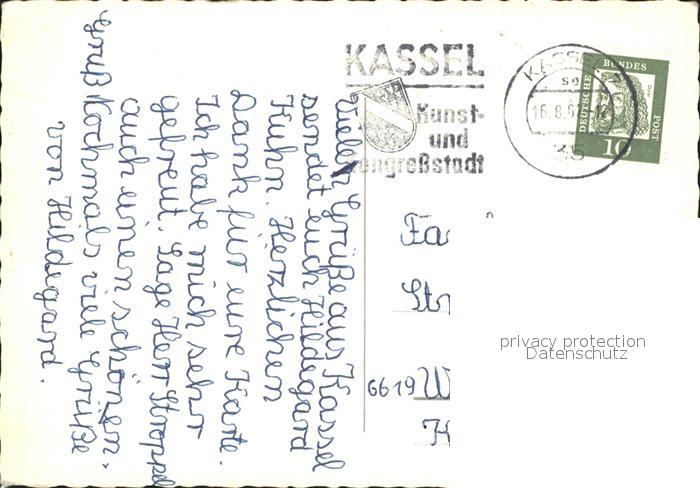 KASSEL
Kunst-
und
Kongreßstadt
KASSEL
16.8.6
35
DEUTSCHE BUNDES POST
10
Viele Grüße aus Kassel
sendet euch Hildegard
Kuhn. Herzlichen
Dank für eure Karte.
Ich habe mich sehr
gefreut. Sage Herr
auch einen schönen
Gruß Nochmals viele Grüße
von Hildegard.
Fa
Str
6619 W
privacy protection
Datenschutz